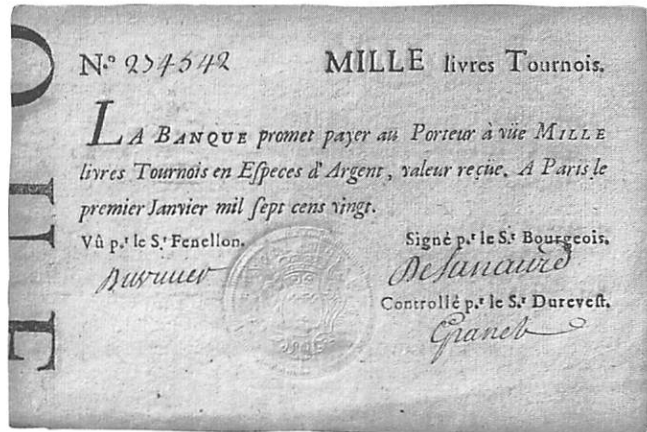 N.º 234542 MILLE livres Tournois.
LA BANQUE promet payer au Porteur à vüe MILLE
livres Tournois en Eſpeces d'Argent, valeur reçüe. A Paris le
premier Janvier mil ſept cens vingt.
Vû p.r le S.r Fenellon. Signé p.r le S.r Bourgeois.
Controllé p.r le S.r Dureveſt.
Granet